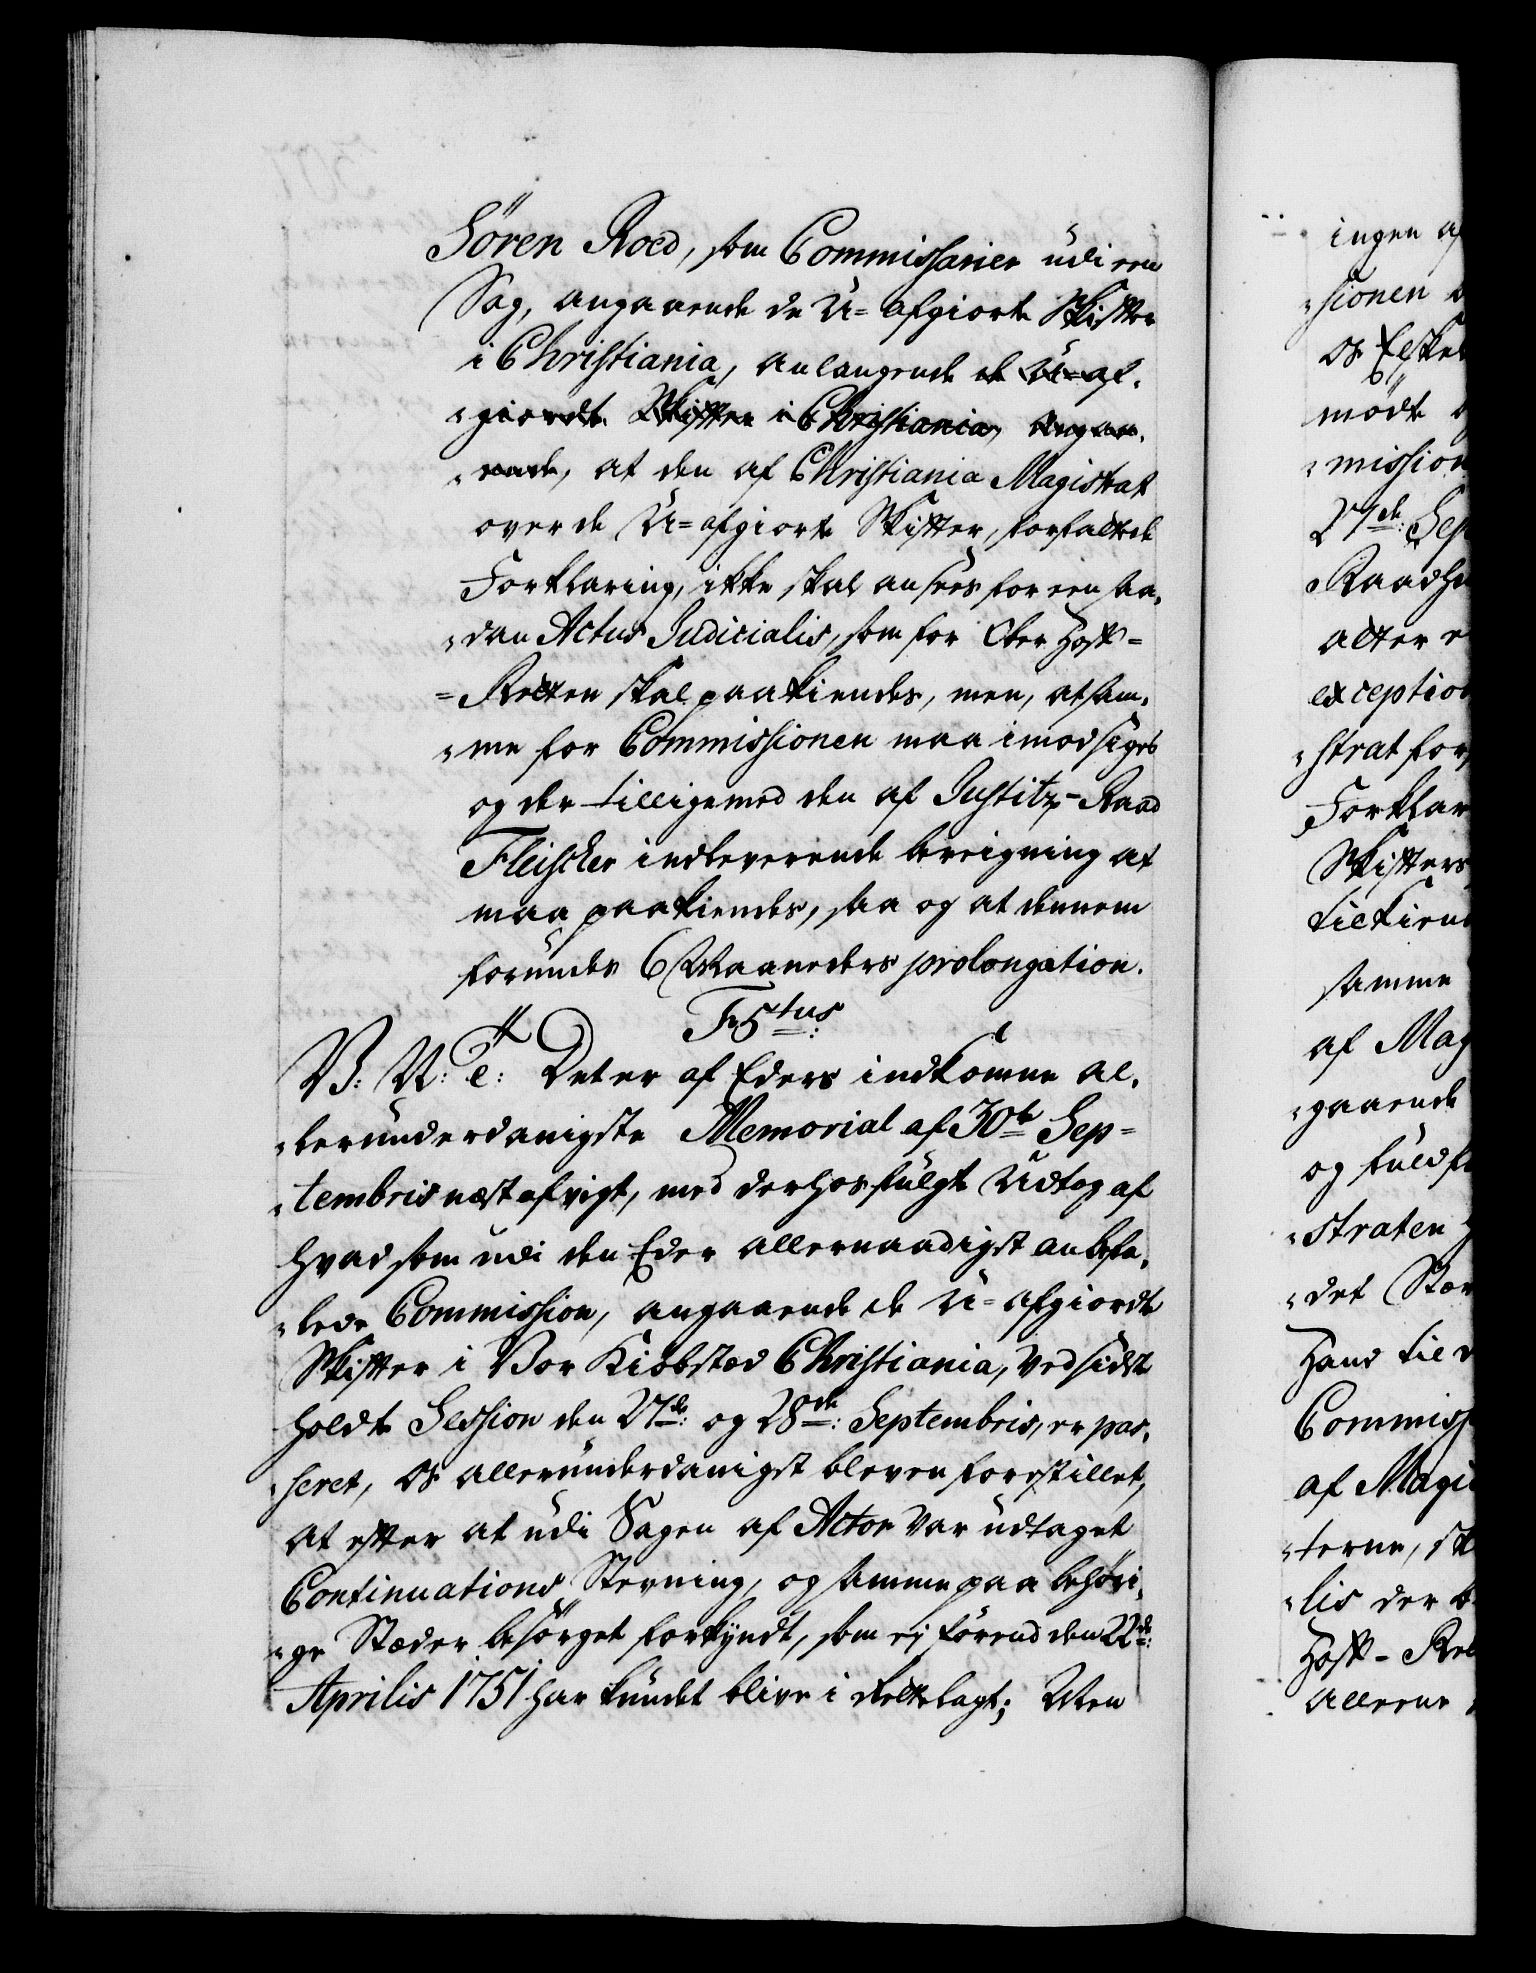 Sören Roed, som Commissarier udi een
Sag, angaaende de U=afgiorte Skifter
i Christiania, anlangende de U=af-
"giordte Skifter i Christiania, angaa-
"ende, at den af Christiania Magistrat
over de U=afgiorte Skifter, forfattede
Forklaring, ikke skal ansees for een saa-
"dan Actus Judicialis, som for Ober Hoff-
=Retten skal paakiendes, men, at sam-
"me for Commissionen maa imodsiges
og der tilligemed den af Justitz-Raad
Fleischer indleverende beregning at
maa paakiendes, saa og at dennem
forundes 6 Maaneders prolongation.
F 5tus:
V: V: T: Det er af Eders indkomne al-
"lerunderdanigste Memorial af 30te Sep=
"tembris næstafvigt, med derhosfulgte Udtog af
hvad som udi den Eder allernaadigst anbefa-
"lede Commission, angaaende de U=afgiordte
Skifter i Vor Kiøbsted Christiania, ved sidst
holdte Session den 27de: og 28de: Septembris, er pas-
"seret, Os allerunderdanigst bleven forestillet,
at efter at udi Sagen af Actor var udtaget
Continuations Stevning, og samme paa behöri-
"ge Stæder besörget forkyndt, som ej förend den 22de:
Aprilis 1751 har kundet blive i Rettelagt; Men
ingen af
"sionen
os Elske
mödt
"mission
27de: Sep
Raadhu
atter
exception
"strat for
Forklar
Skifters
tilkien
samme
af Mag
"gaaende
og fuld
"straten
"det Stæ
Hand til
Commiss
af Magi
"terne, sk
"lis der
Hoff-Re
Alleene